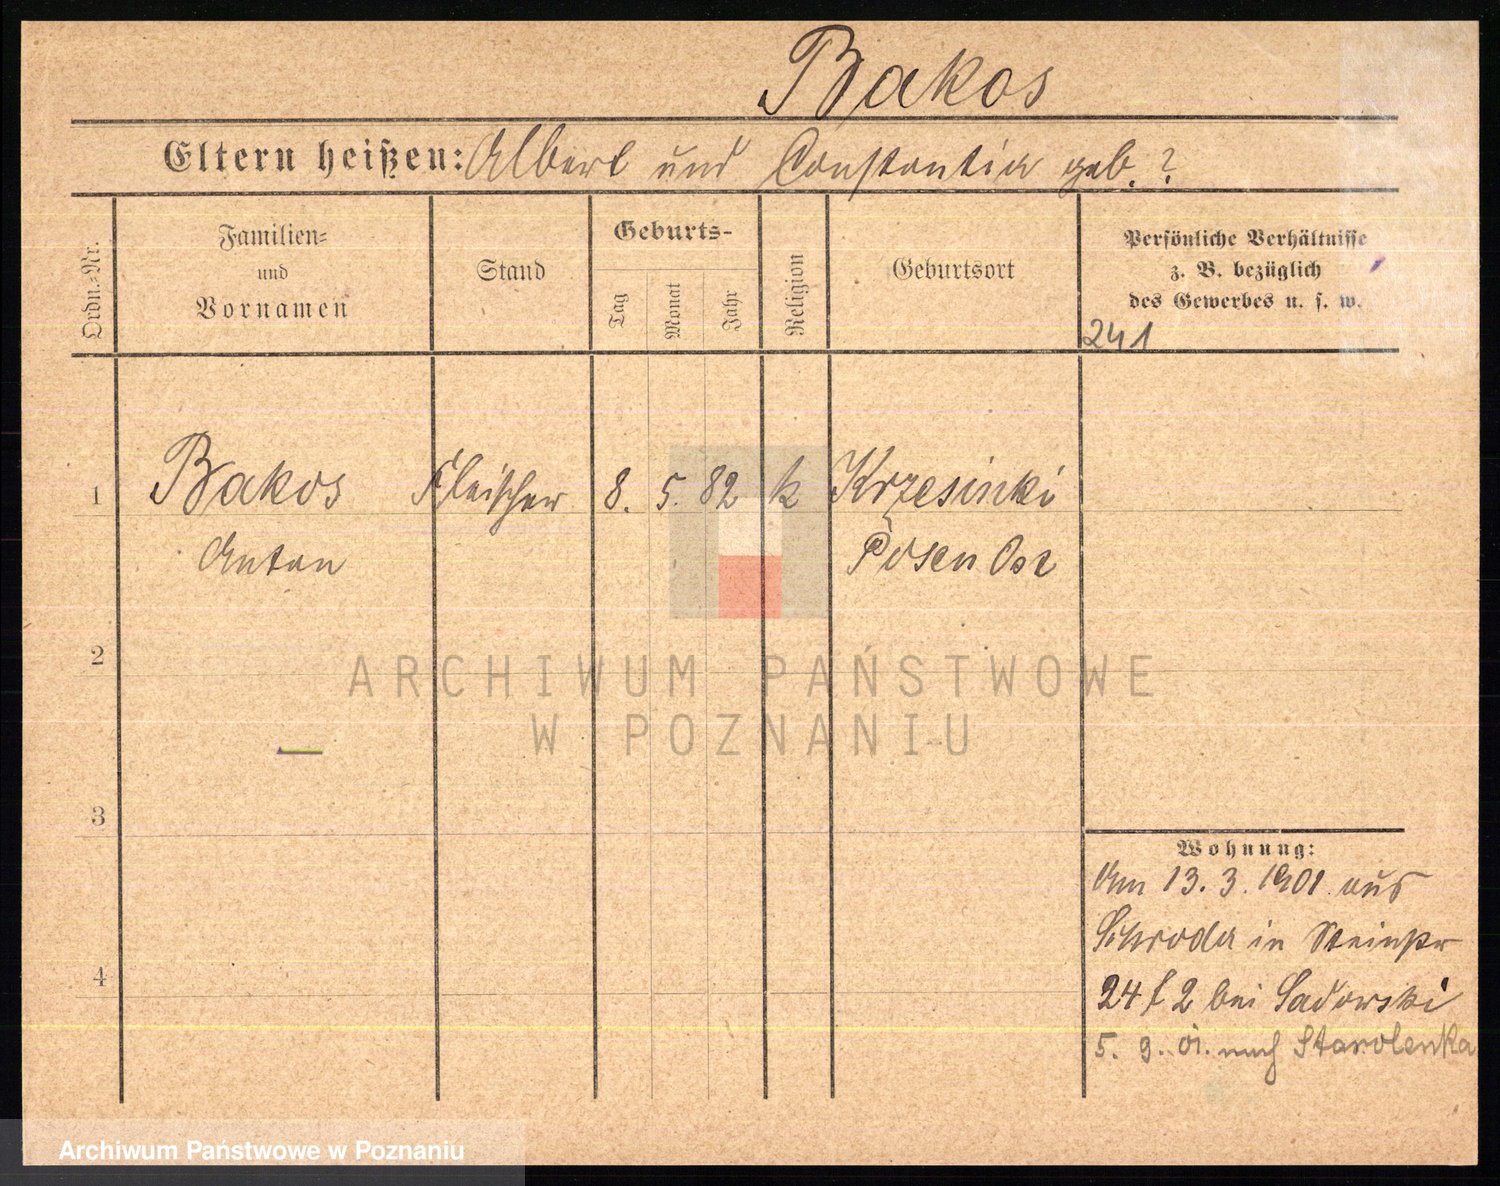 Bakos
Eltern heißen: Albert und Constantia geb. ?
Ordn.-Nr.
Familien-
und
Vornamen
Stand
Geburts-
Tag
Monat
Jahr
Religion
Geburtsort
Persönliche Verhältnisse
z. B. bezüglich
des Gewerbes u. s. w.
241
1 Bakos Fleischer 8. 5. 82 k Krzesinki
Anton Posen Ost
2
ARCHIWUM PAŃSTWOWE
W POZNANIU
3
Wohnung:
Am 13. 3. 1901 aus
Schroda in
4
24 f 2 bei Sadowski
5. 9. 01. nach Starolenka
Archiwum Państwowe w Poznaniu